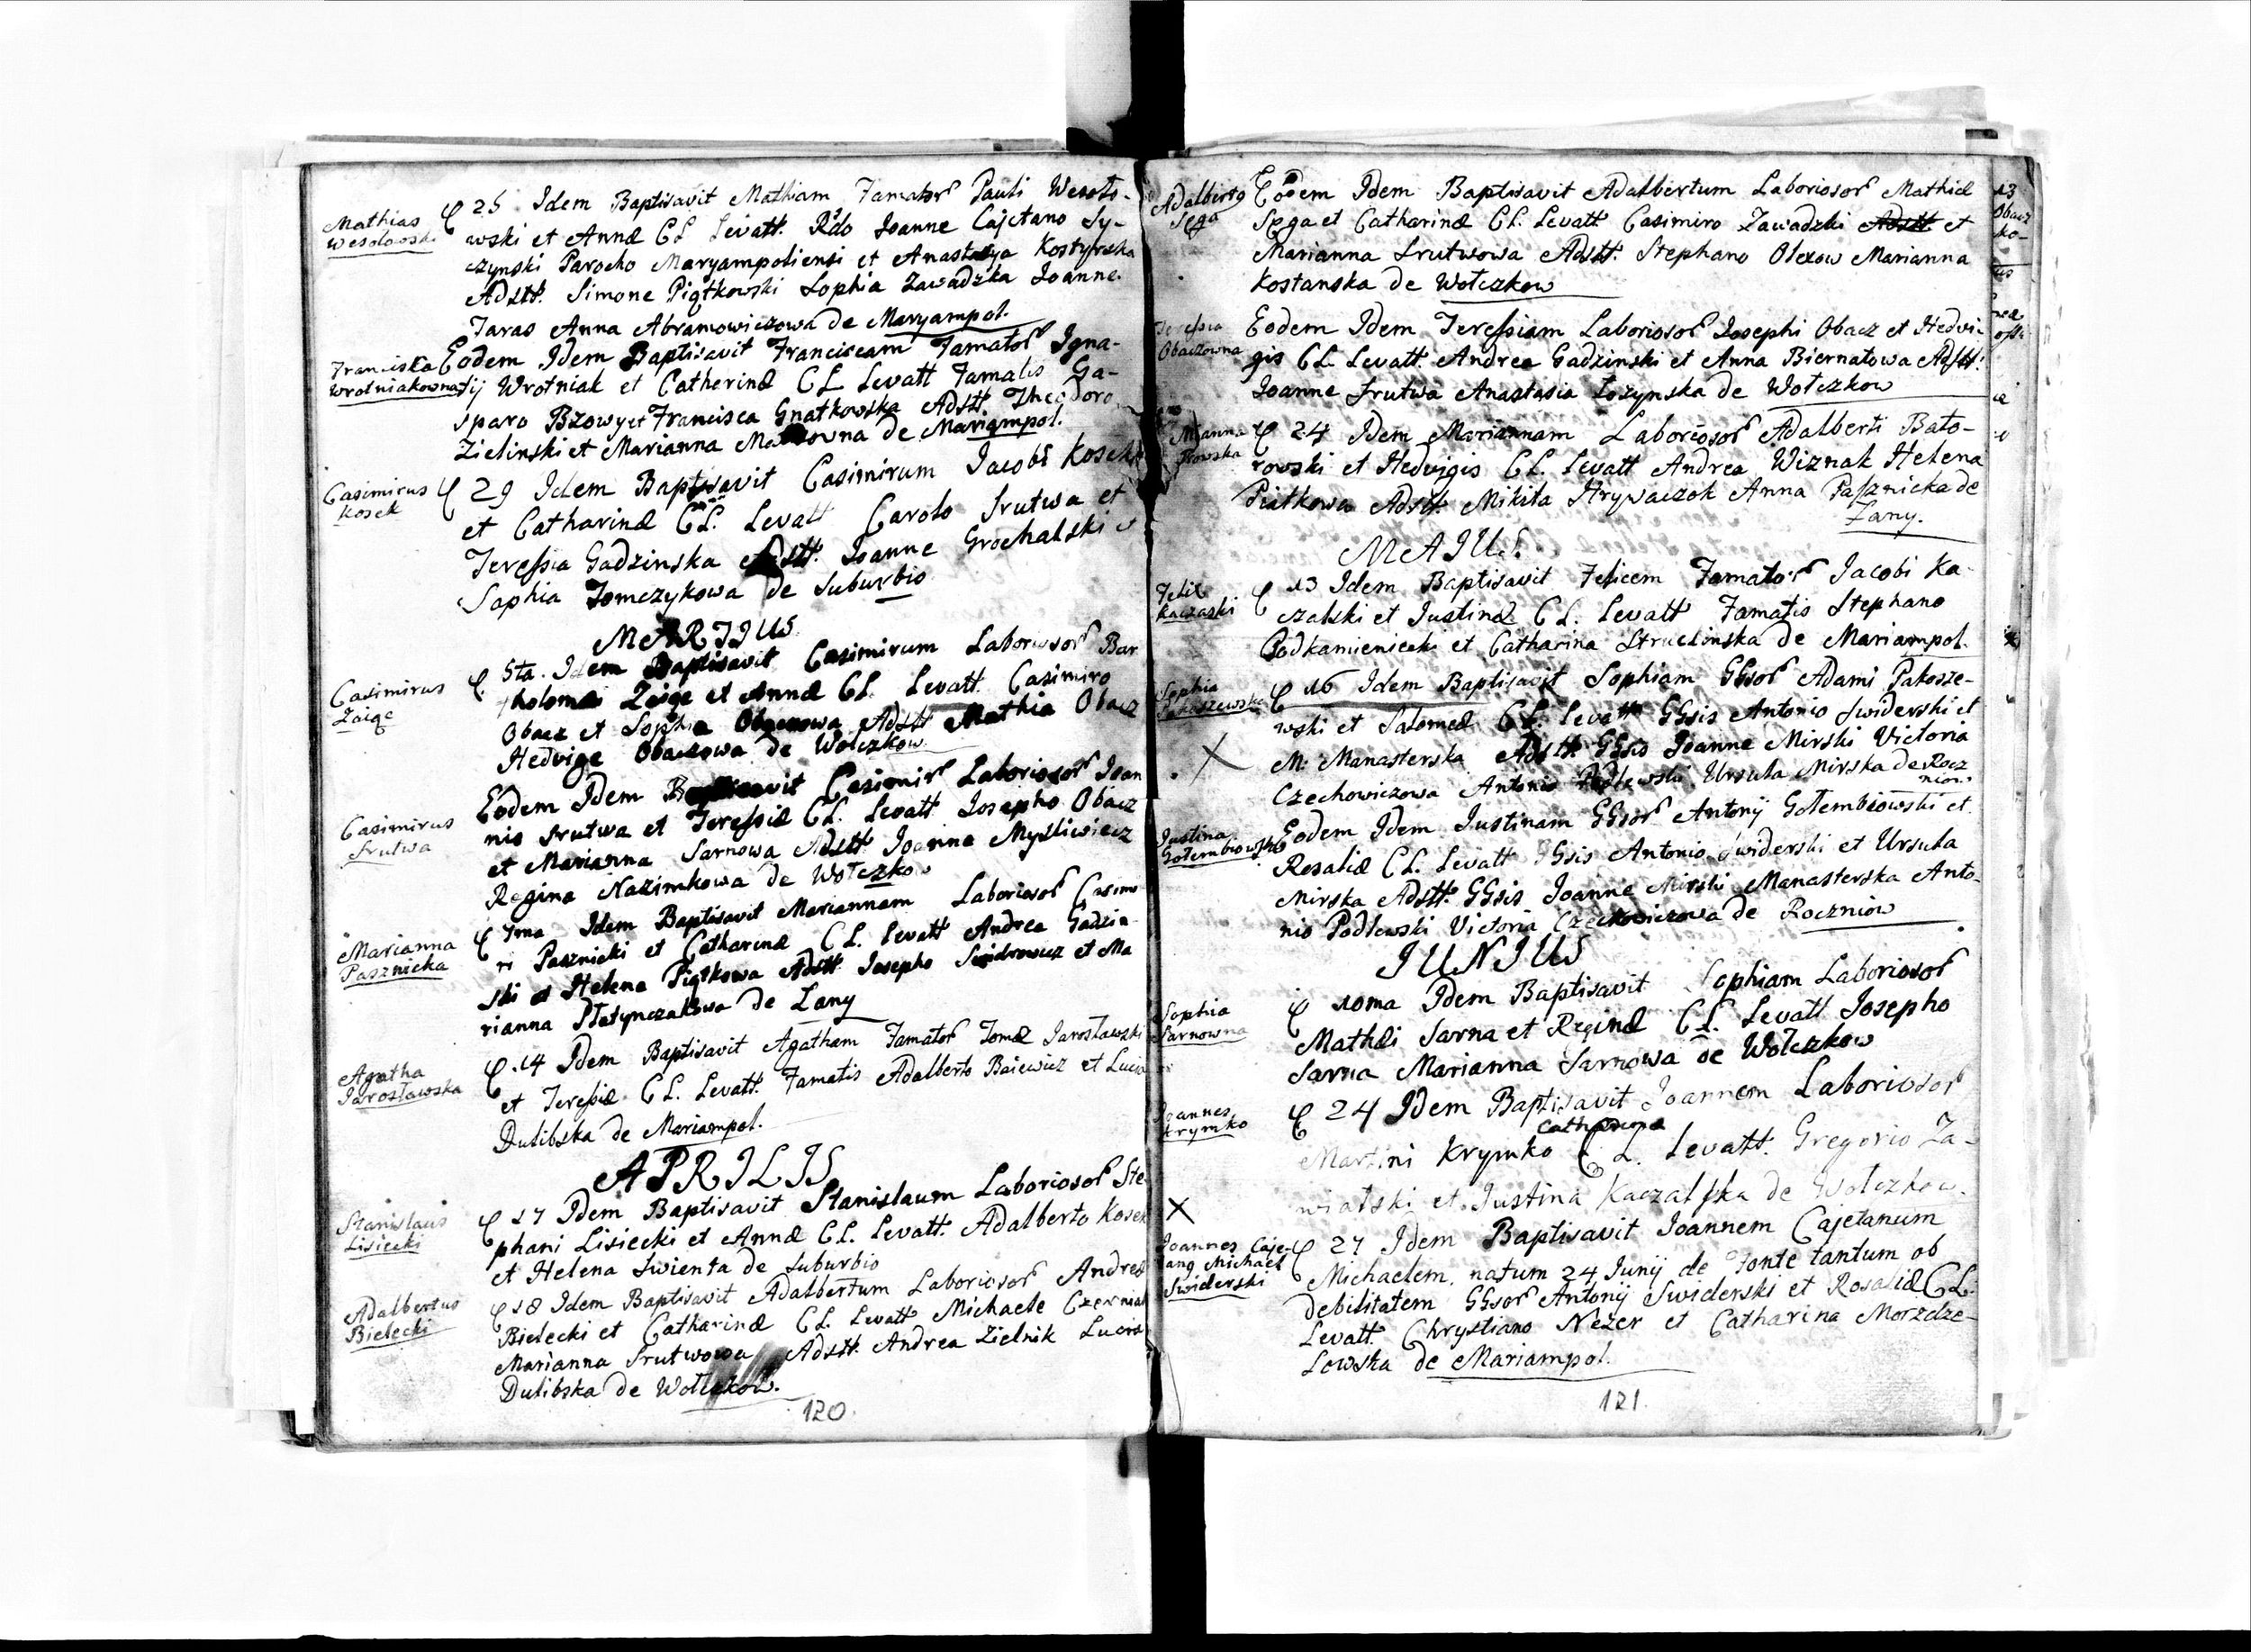 Mathias
Wesołowski
25 Idem Baptisavit Mathiam Famator Pauli Wesoło-
wski et Annæ CL Levatt. Rdo Joanne Cajetano Sy-
czynski Parocho Maryampoliensi et Anastasya Kostyrska
Adstt. Simone Piątkowski Sophia Zawadzka Joanne
Taras Anna Abramowiczowa de Maryampol.
Franciska
Wrotniakowna
Eodem Idem Baptisavit Franciscam Famator Igna-
tij Wrotniak et Catherinæ CL Levatt Famatis Ga-
sparo Bzowy et Francisca Gnatkowska Adstt Theodoro
Zielinski et Marianna de Mariampol.
Casimirus
Kosek
29 Idem Baptisavit Casimirum Jacobi Kosek
et Catharinæ CL. Levatt Carolo Srutwa et
Teressia Gadzinska Adstt. Joanne Grochalski
Sophia Tomczykowa de Suburbio
MARTIUS
Casimirus
Zaige
5ta. Idem Baptisavit Casimirum Laborosor Bar
tholomei Zaige et Annæ CL. Levatt. Casimiro
Obacz et Sophia Obaczowa Adstt Mathia Obacz
Hedvige Obaczowa de Wolczkow
Casimirus
Srutwa
Eodem Idem Baptisavit Casimir Laboriosor Joan
nis Srutwa et Teressiæ CL. Levatt Josepho Obacz
et Marianna Sarnowa Adstt Joanne Myśliwiecz
Regina Nazimkowa de Wołczkow
Marianna
Pasznicka
7ma Idem Baptisavit Mariannam Laboriosor Casimi
ri Pasznicki et Catharinæ CL. Levatt Andrea Gadzin
ski et Helena Piątkowa Adstt Josepho et Ma
rianna de Łany
Agatha
Jarosławska
14 Idem Baptisavit Agatham Famator Tomæ Jarosławski
et Teressiæ CL. Levatt. Famatis Adalberto Baiewicz et Lucia
Dulibska de Mariampol.
APRILIS
Stanislaus
Lisiecki
17 Idem Baptisavit Stanislaum Laboriosor Ste
phani Lisiecki et Annæ CL. Levatt. Adalberto Kosek
et Helena Swienta de Suburbio
Adalbertus
Bielecki
18 Idem Baptisavit Adalbertum Laboriosor Andreæ
Bielecki et Catharinæ CL. Levatt Michaele Czerniak
Marianna Srutwowa Adstt. Andrea Zielnik Lucia
Dulibska de Wołczkow.
120.
Adalbertq
Sęga
Eodem Idem Baptisavit Adalbertum Laboriosor Mathiæ
Sęga et Catharinæ CL. Levatt Casimiro Zawadzki Adstt et
Marianna Srutwowa Adstt. Stephano Olexow Marianna
Kostanska de Wołczkow
Teressia
Obaczowna
Eodem Idem Teressiam Laboriosor Josephi Obacz et Hedvi-
gis CL. Levatt. Andrea Gadzinski et Anna Biernatowa Adstt.
Joanne Srutwa Anastasia Łozynska de Wołczkow
24 Idem Mariannam Laboriosor Adalberti Bato-
rowski et Hedvigis CL. Levatt Andrea Wiznak Helena
Piątkowa Adstt. Mikita Hrywaczok Anna Pasznicka de
Łany.
MAIUS
Felix
Kaczalski
13 Idem Baptisavit Felicem Famator Jacobi Ka-
czalski et Justinæ CL. Levatt Famatis Stephano
Podkamieniecki et Catharina Struclinska de Mariampol.
Sophia
Pakoszewska
16 Idem Baptisavit Sophiam GGsor Adami Pakosze-
wski et Salomeæ CL. Levatt GGsis Antonio Swiderski et
M: Manasterska Adstt. GGsis Joanne Mirski Victoria
Czechowiczowa Antonio Podlewski Ursula Mirska de Rocz
niow
Justina
Gołembiowska
Eodem Idem Justinam GGsor Antonij Gołembiowski et
Rosaliæ CL. Levatt GGsis Antonio Swiderski et Ursula
Mirska Adstt. GGsis Joanne Mirski Manasterska Anto-
nio Podlewski Victoria Czechowiczowa de Roczniow
JUNIUS
Sophia
Sarnowna
10ma Idem Baptisavit Sophiam Laboriosor
Mathæi Sarna et Reginæ CL. Levatt Josepho
Sarna Marianna Sarnowa de Wołczkow
Joannes
Krymko
24 Idem Baptisavit Joannem Laboriosor
Catharina
Martini Krymko CL. Levatt. Gregorio Za-
wiatski et Justina Kaczalska de Wołczkow.
Joannes Caje-
tanq Michael
Swiderski
27 Idem Baptisavit Joannem Cajetanum
Michaelem, natum 24 Junij de Fonte tantum ob
debilitatem GGsor Antonij Swiderski et Rosaliæ CL.
Levatt. Chrystiano Nezer et Catharina Morzdze-
lowska de Mariampol.
121.